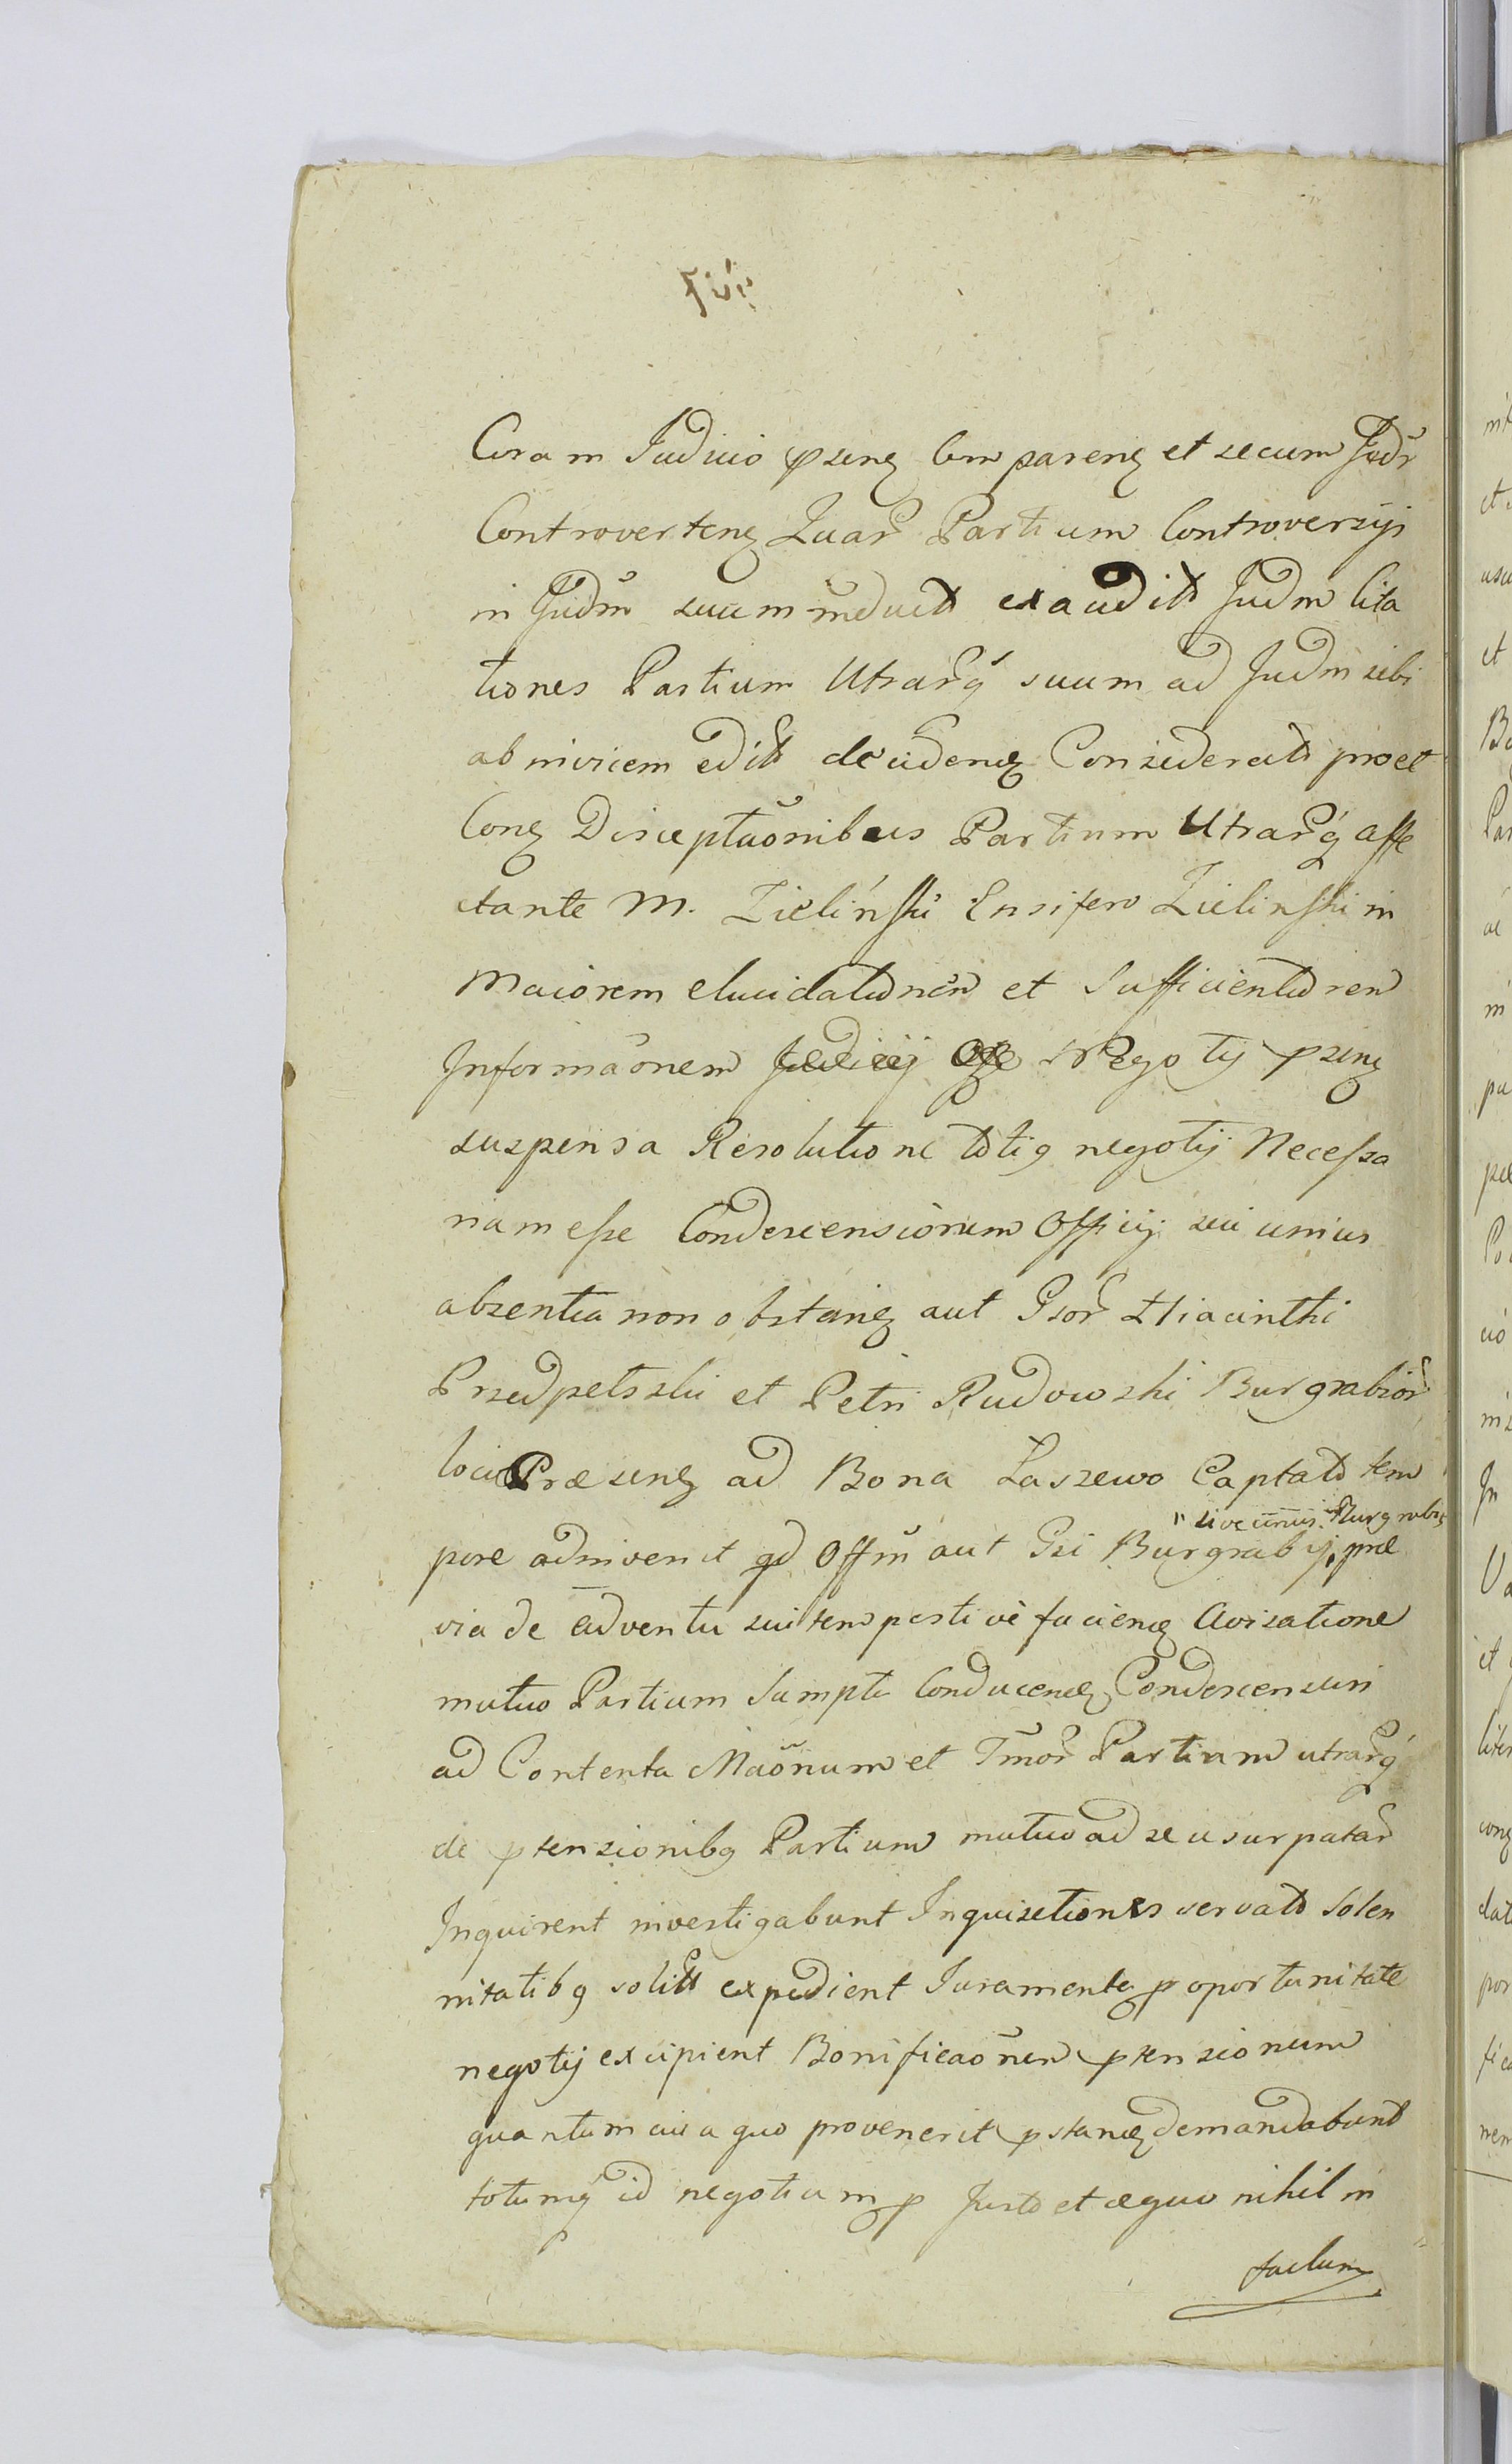 Coram Iudicio pseng Compareng et secum Judr
Controverteng Quar Partium Controversijs
in Judm suum inductt exauditt Judm Cita
tiones Partium Utrarq suum ad Judm sibi
ab invicem editt decideng Consideratt pro et
Cong Disceptaonibus Partium Utrarq affe
ctante M. Zieliński Ensifero Zielinski in
Maiorem elucidationem et Sufficientiorem
Informaonem Negotij pseng
suspensa Resolutione totiq negotij Necessa
riam esse Condescensionem Officij sui unius
absentia non obstang aut Gsor Hiacinthi
et Petri Rudowski Burgrabior
loci Præseng ad Bona Laszewo Captatt tem
" sive unius Burgrabij
pore adinvenit qd Offm aut Gsi Burgrabij, præ
via de adventu sui tempestivè facieng Avisatione
mutuo Partium Sumptu Conduceng Condescensuri
ad Contenta Maonum et Tmor Partium utrarq
de ptensionibq Partium mutuo ad se usurpatar
Inquirent investigabunt Inquisitiones servatt Solen
nitatibq solitt expedient Iuramenta p oportunitate
negotij excipient Bonificaonem ptensionum
quantum cui a quo provenerit pstang demandabunt
totumq id negotium p Justo et æquo nihil in
factum